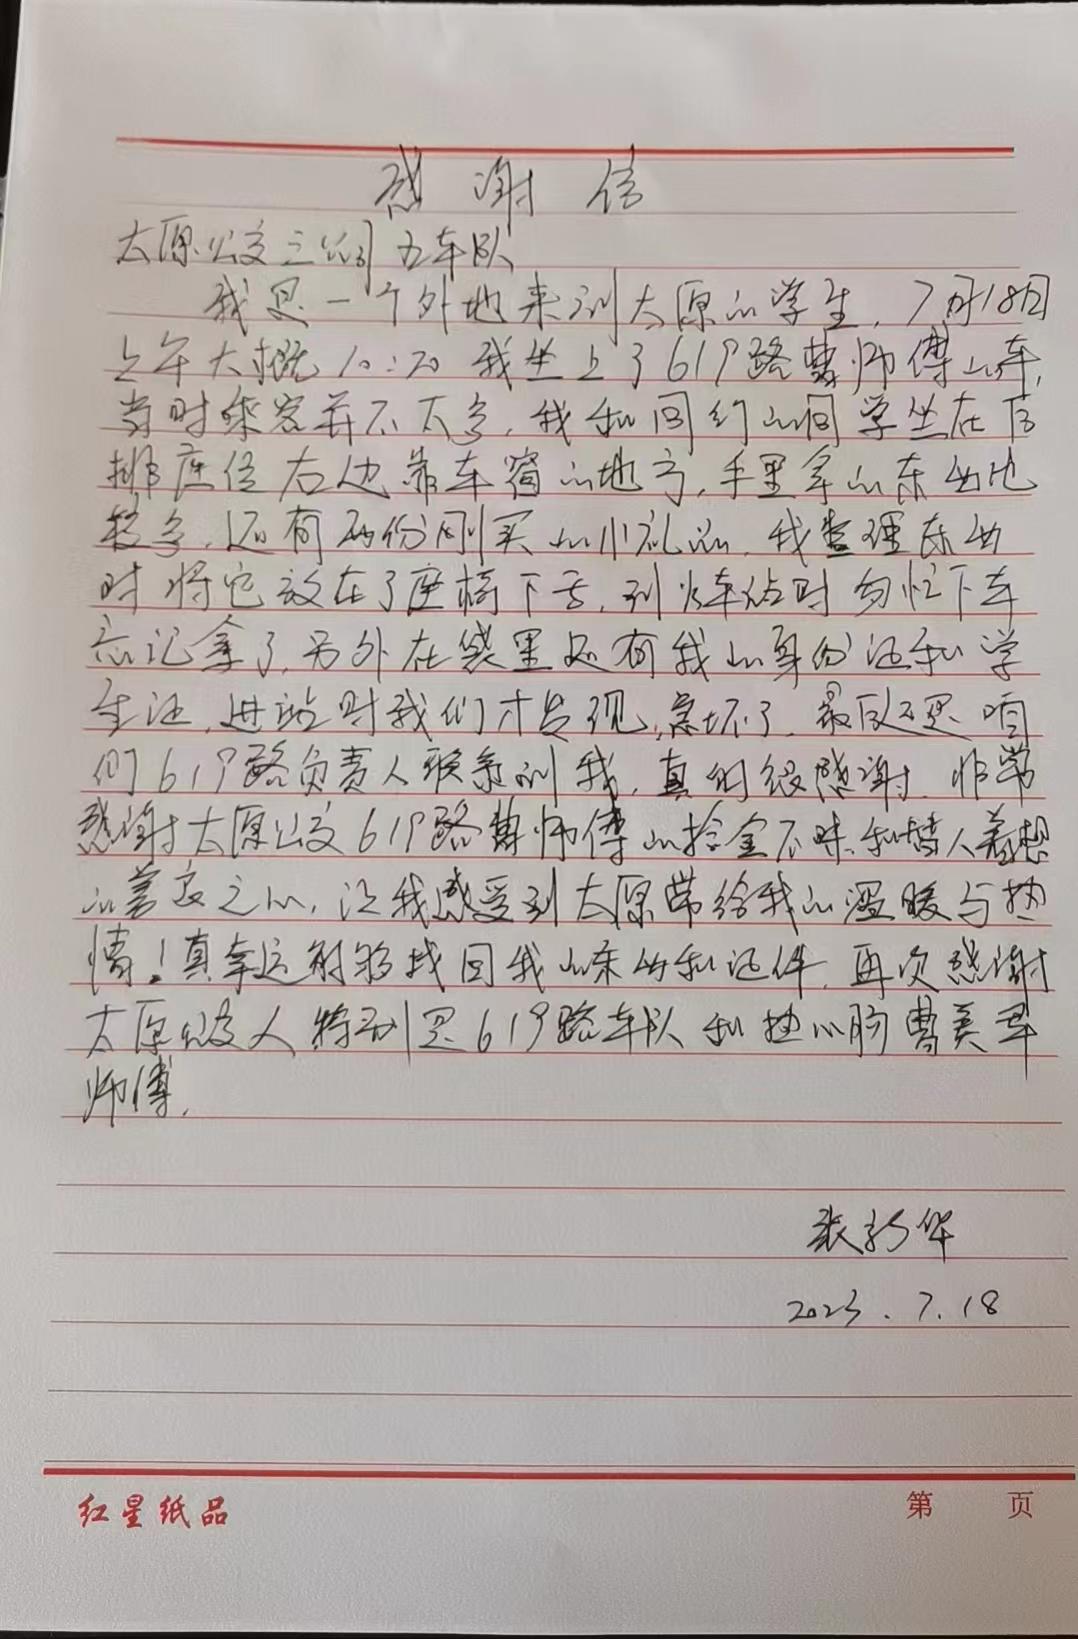 感谢信
太原公交三公司五车队
我是一个外地来到太原的学生，7月18日
上午大概10:20我坐上了619路曹师傅的车，
当时乘客并不太多，我和同行的同学坐在后
排座位右边靠车窗的地方，手里拿的东西也
较多，还有两份刚买的小礼品，我整理东西
时将它放在了座椅下面，到火车站时匆忙下车
忘记拿了，另外在袋里还有我的身份证和学
生证，进站时我们才发现，急坏了，最后还是咱
们619路负责人联系到我，真的很感谢，非常
感谢太原公交619路曹师傅的拾金不昧和替人着想
的善良之心，让我感受到太原带给我的温暖与热
情！真幸运能够找回我的东西和证件，再次感谢
太原公交人特别是619路车队和热心肠曹美军
师傅，
张新华
2023.7.18
红星纸品
第 页